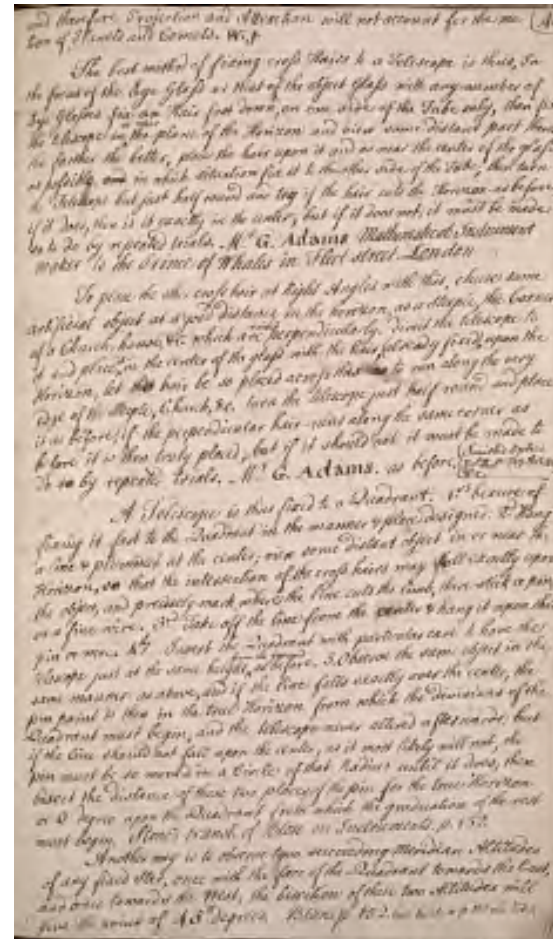 and therefore Projection and Attraction will not account for the mo
tion of Planets and Comets. W.J
The best method of fixing cross Hairs to a Telescope is thus, In
the focus of the Eye Glass or that of the object Glass with any number of
Eye Glasses fix an Hair fast down, on one side of the Tube only, then fix
the Telescope in the plane of the Horizon and view some distant part there
the farther the better, place the hair upon it and as near the center of the glass
as possible, in which situation fix it to the other side of the Tube, then turn
the Telescope but just half round and try if the hair cuts the Horizon as before
if it does, then is it exactly in the center, but if it does not, it must be made
so to do by repeated trials. Mr. G. Adams Mathematical Instrument
maker to the Prince of Whales in Fleet street London
To place the other cross hair at Right Angles with this, chuse some
artificial object at a good distance in the horizon, as a Steeple, the Corner
of a Church, house, &c which are perpendicular, direct the telescope to
it and place it in the center of the glass with the hair already fixed upon the
Horizon, let the hair be so placed across this as to run along the very
edge of the Steeple, Church, &c. turn the telescope just half round and place
it as before, if the perpendicular hair runs along the same corner as
before it is then truly placed, but if it should not it must be made to
do so by repeated trials. Mr. G. Adams. as before.
A Telescope is thus fixed to a Quadrant. 1st because of
fixing it fast to the Quadrant in the manner & place designed. 2d Hang
a line & plummet at the center; view some distant object in or near the
Horizon, so that the intersection of the cross hairs may fall exactly upon
the object, and precisely mark where the line cuts the limb, there stick a pin
or a fine wire. 3d Take off the line from the center & hang it upon the
pin or wire. 4th Invert the Quadrant with particular care to have the
Telescope just at the same height, as before. 5. Observe the same object in the
same manner as above, and if the line falls exactly over the center, the
pin point is then in the true Horizon from which the divisions of the
Quadrant must begin, and the telescope never altered afterwards, but
if the line should not fall upon the center, as it most likely will not, the
pin must be so moved in a Circle of that Radius until it does, then
bisect the distance of these two places of the pin for the true Horizon
or 0 degree upon the Quadrant from which the graduation of the rest
must begin. Stone's transl. of Bion on Instruments. p. 152.
Another way is to observe two succeeding Meridian Altitudes
of any fixed Star, once with the face of the Quadrant towards the East,
and once towards the West, the bisection of these two Altitudes will
give the point of 45 degrees. Bion p. 152.